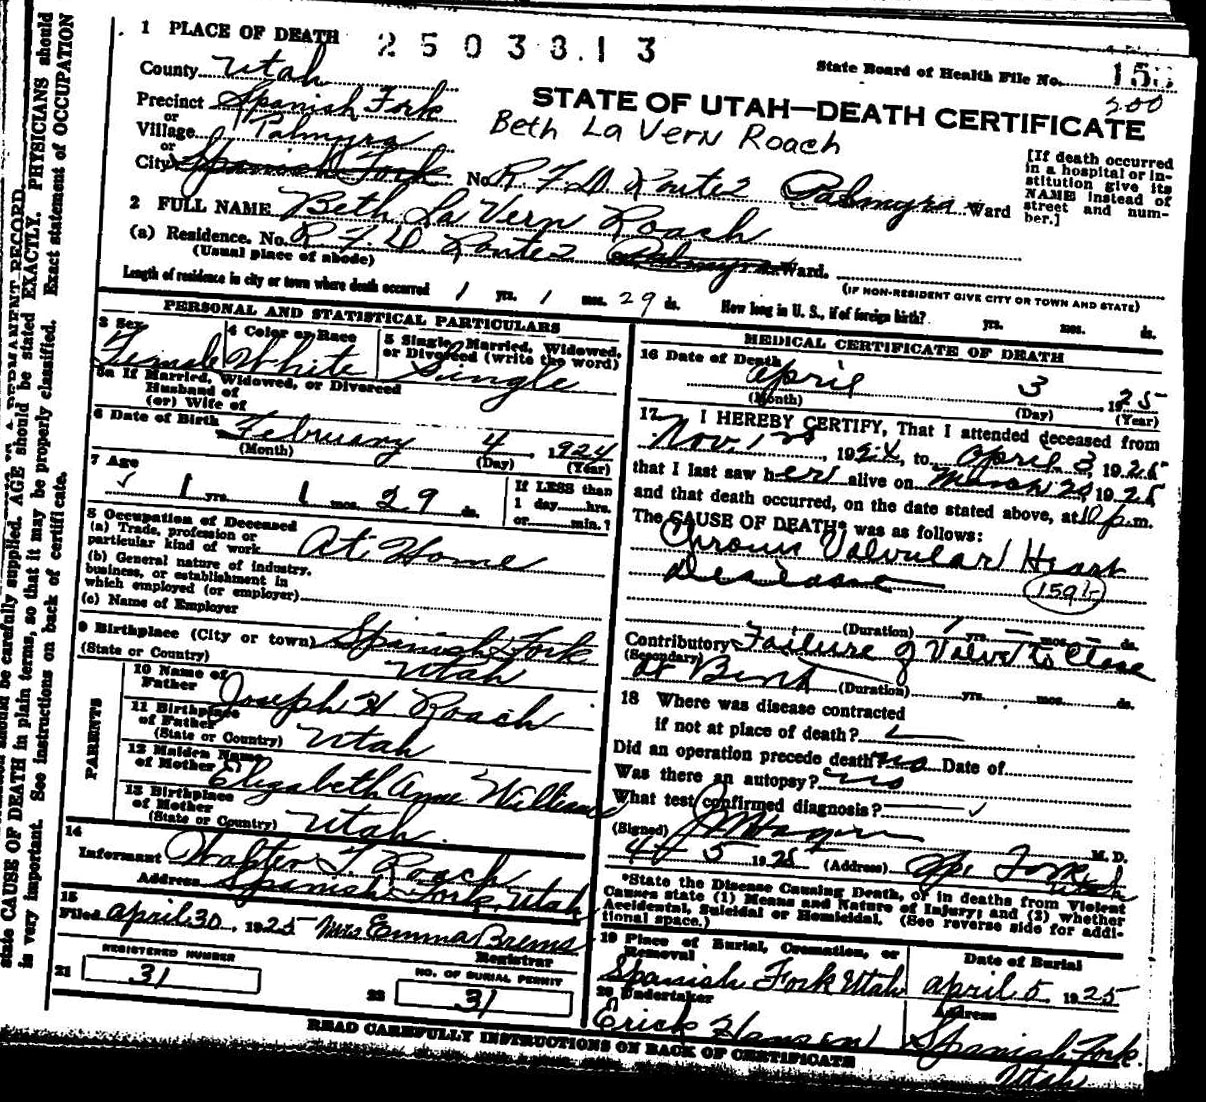 1 PLACE OF DEATH 2503813
State Board of Health File No.
200
County Utah
STATE OF UTAH—DEATH CERTIFICATE
Precinct Spanish Fork
or
Beth La Vern Roach
Village Palmyra
or
City Spanish Fork No. R.F.D Route 2 Palmyra Ward
[If death occurred
in a hospital or in-
stitution give its
NAME instead of
street and num-
ber.]
2 FULL NAME Beth La Vern Roach
(a) Residence. No. R.F.D Route 2 Palmyra Ward.
(Usual place of abode)
(IF NON-RESIDENT GIVE CITY OR TOWN AND STATE)
Length of residence in city or town where death occurred 1 yrs. 1 mos. 29 ds. How long in U. S., if of foreign birth? yrs. mos. ds.
PERSONAL AND STATISTICAL PARTICULARS
3 Sex
Female
4 Color or Race
White
5 Single, Married, Widowed,
or Divorced (write the word)
Single
5a If Married, Widowed, or Divorced
Husband of
(or) Wife of
6 Date of Birth February 4, 1924
(Month) (Day) (Year)
7 Age
1 yrs. 1 mos. 29 ds.
If LESS than
1 day hrs.
or min.?
8 Occupation of Deceased
(a) Trade, profession or
particular kind of work At Home
(b) General nature of industry,
business, or establishment in
which employed (or employer)
(c) Name of Employer
9 Birthplace (City or town) Spanish Fork
(State or Country) Utah
PARENTS
10 Name of
Father Joseph H Roach
11 Birthplace
of Father
(State or Country) Utah
12 Maiden Name
of Mother Elizabeth Anne Williams
13 Birthplace
of Mother
(State or Country) Utah.
14
Informant Walter T Roach
Address Spanish Fork, Utah
15
Filed April 30 1925 Mrs Emma Brems
Registrar
REGISTERED NUMBER
21 31
NO. OF BURIAL PERMIT
22 31
MEDICAL CERTIFICATE OF DEATH
16 Date of Death
April 3, 1925
(Month) (Day) (Year)
17 I HEREBY CERTIFY, That I attended deceased from
Nov. 1924, to April 3 1925
that I last saw her alive on March 20 1925
and that death occurred, on the date stated above, at 10 p.m.
The CAUSE OF DEATH* was as follows:
Chronic Valvular Heart
Desease
(Duration) 1 yrs. — mos. — ds.
Contributory Failure of Valve to Close
(Secondary)
at Birth (Duration) yrs. mos. ds.
18 Where was disease contracted
if not at place of death?
Did an operation precede death? no Date of
Was there an autopsy? no
What test confirmed diagnosis?
(Signed) M. D.
4/5 1925 (Address) Sp. Fork
Utah
*State the Disease Causing Death, or in deaths from Violent
Causes state (1) Means and Nature of Injury; and (2) whether
Accidental, Suicidal or Homicidal. (See reverse side for addi-
tional space.)
19 Place of Burial, Cremation, or
Removal
Spanish Fork Utah
Date of Burial
April 5 1925
20 Undertaker
Erick Hansen
Address
Spanish Fork.
Utah
READ CAREFULLY INSTRUCTIONS ON BACK OF CERTIFICATE
should be carefully supplied. AGE should be stated EXACTLY. PHYSICIANS should
state CAUSE OF DEATH in plain terms, so that it may be properly classified. Exact statement of OCCUPATION
is very important. See instructions on back of certificate.